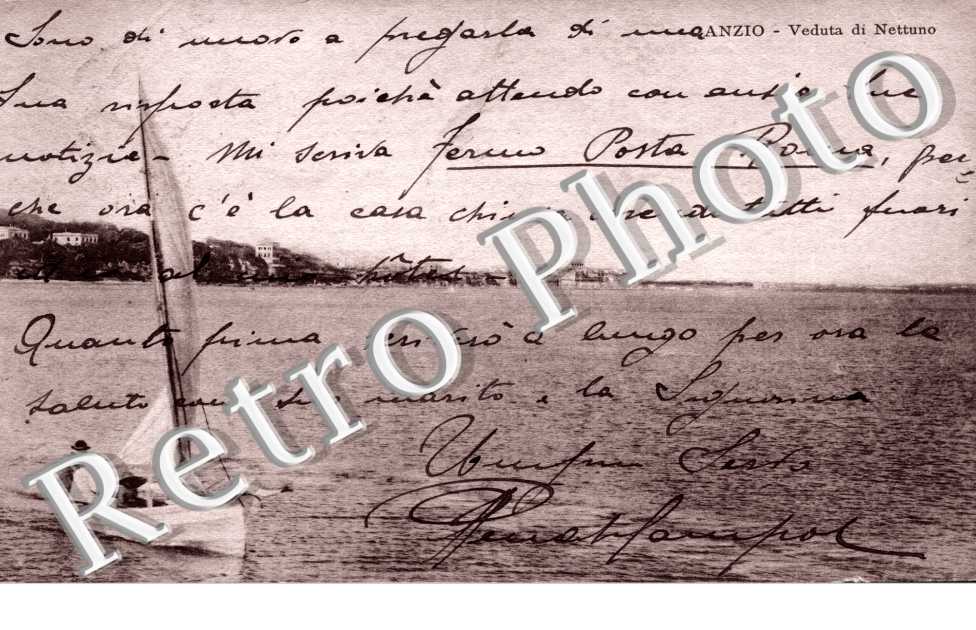 ANZIO - Veduta di Nettuno
Sono di nuovo a pregarla di una
Sua risposta poichà attendo con ansia sue
notizie - Mi scriva Fermo Posta Roma, per
che ora c'è la casa chiusa tutti fuori
Quanto prima scriverò a lungo per ora la
saluto con suo marito e la Signorina
Servo
Retro Photo